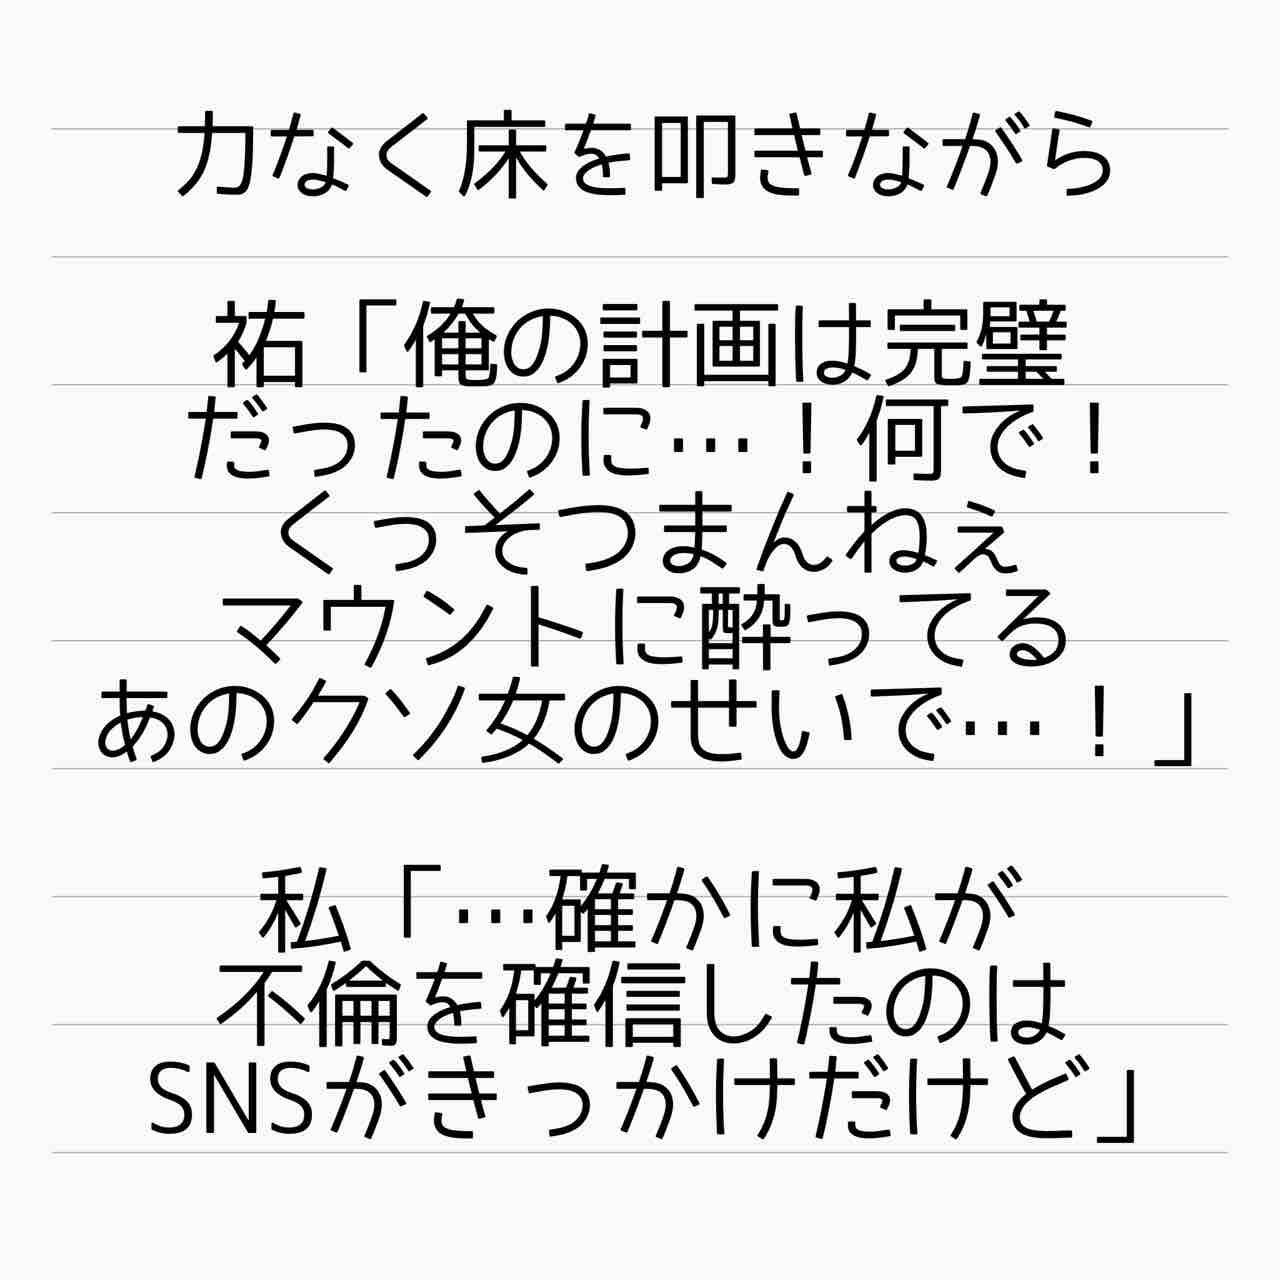 力なく床を叩きながら
祐「俺の計画は完璧
だったのに…！何で！
くっそつまんねぇ
マウントに酔ってる
あのクソ女のせいで…！」
私「…確かに私が
不倫を確信したのは
SNSがきっかけだけど」